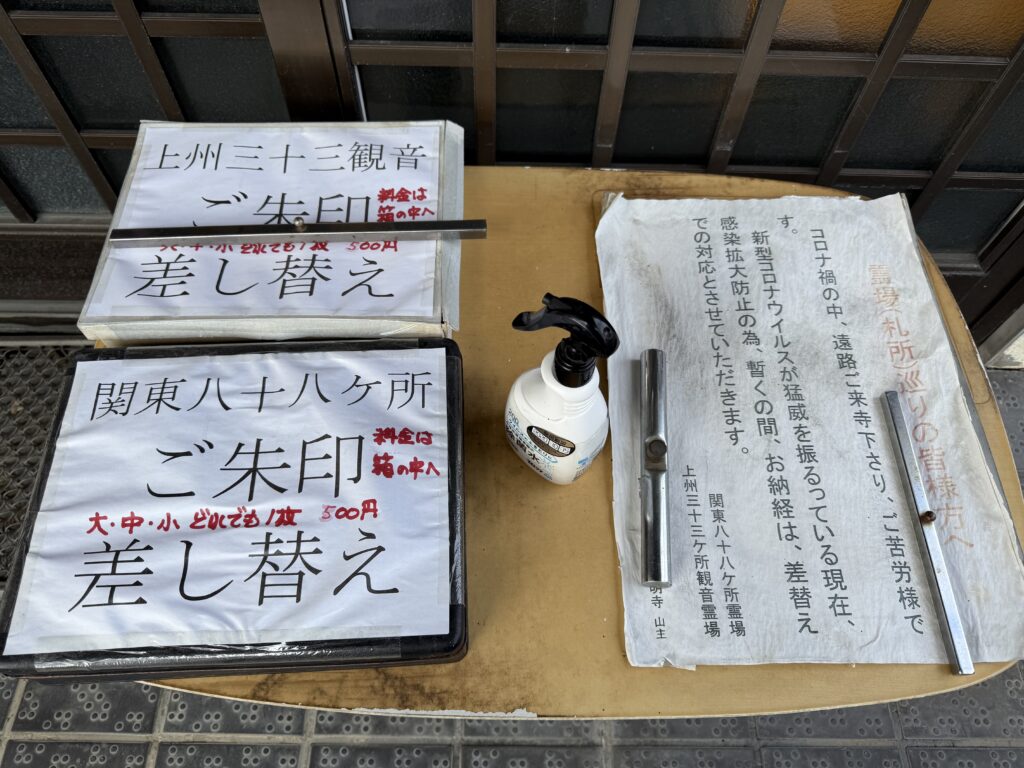 上州三十三観音
ご朱印
料金は
箱の中へ
大・中・小 どれでも1枚 500円
差し替え
関東八十八ケ所
ご朱印
料金は
箱の中へ
大・中・小 どれでも1枚 500円
差し替え
霊場(札所)巡りの皆様方へ
コロナ禍の中、遠路ご来寺下さり、ご苦労様で
す。
新型コロナウイルスが猛威を振るっている現在、
感染拡大防止の為、暫くの間、お納経は、差替え
での対応とさせていただきます。
関東八十八ケ所霊場
上州三十三ケ所観音霊場
明寺 山主